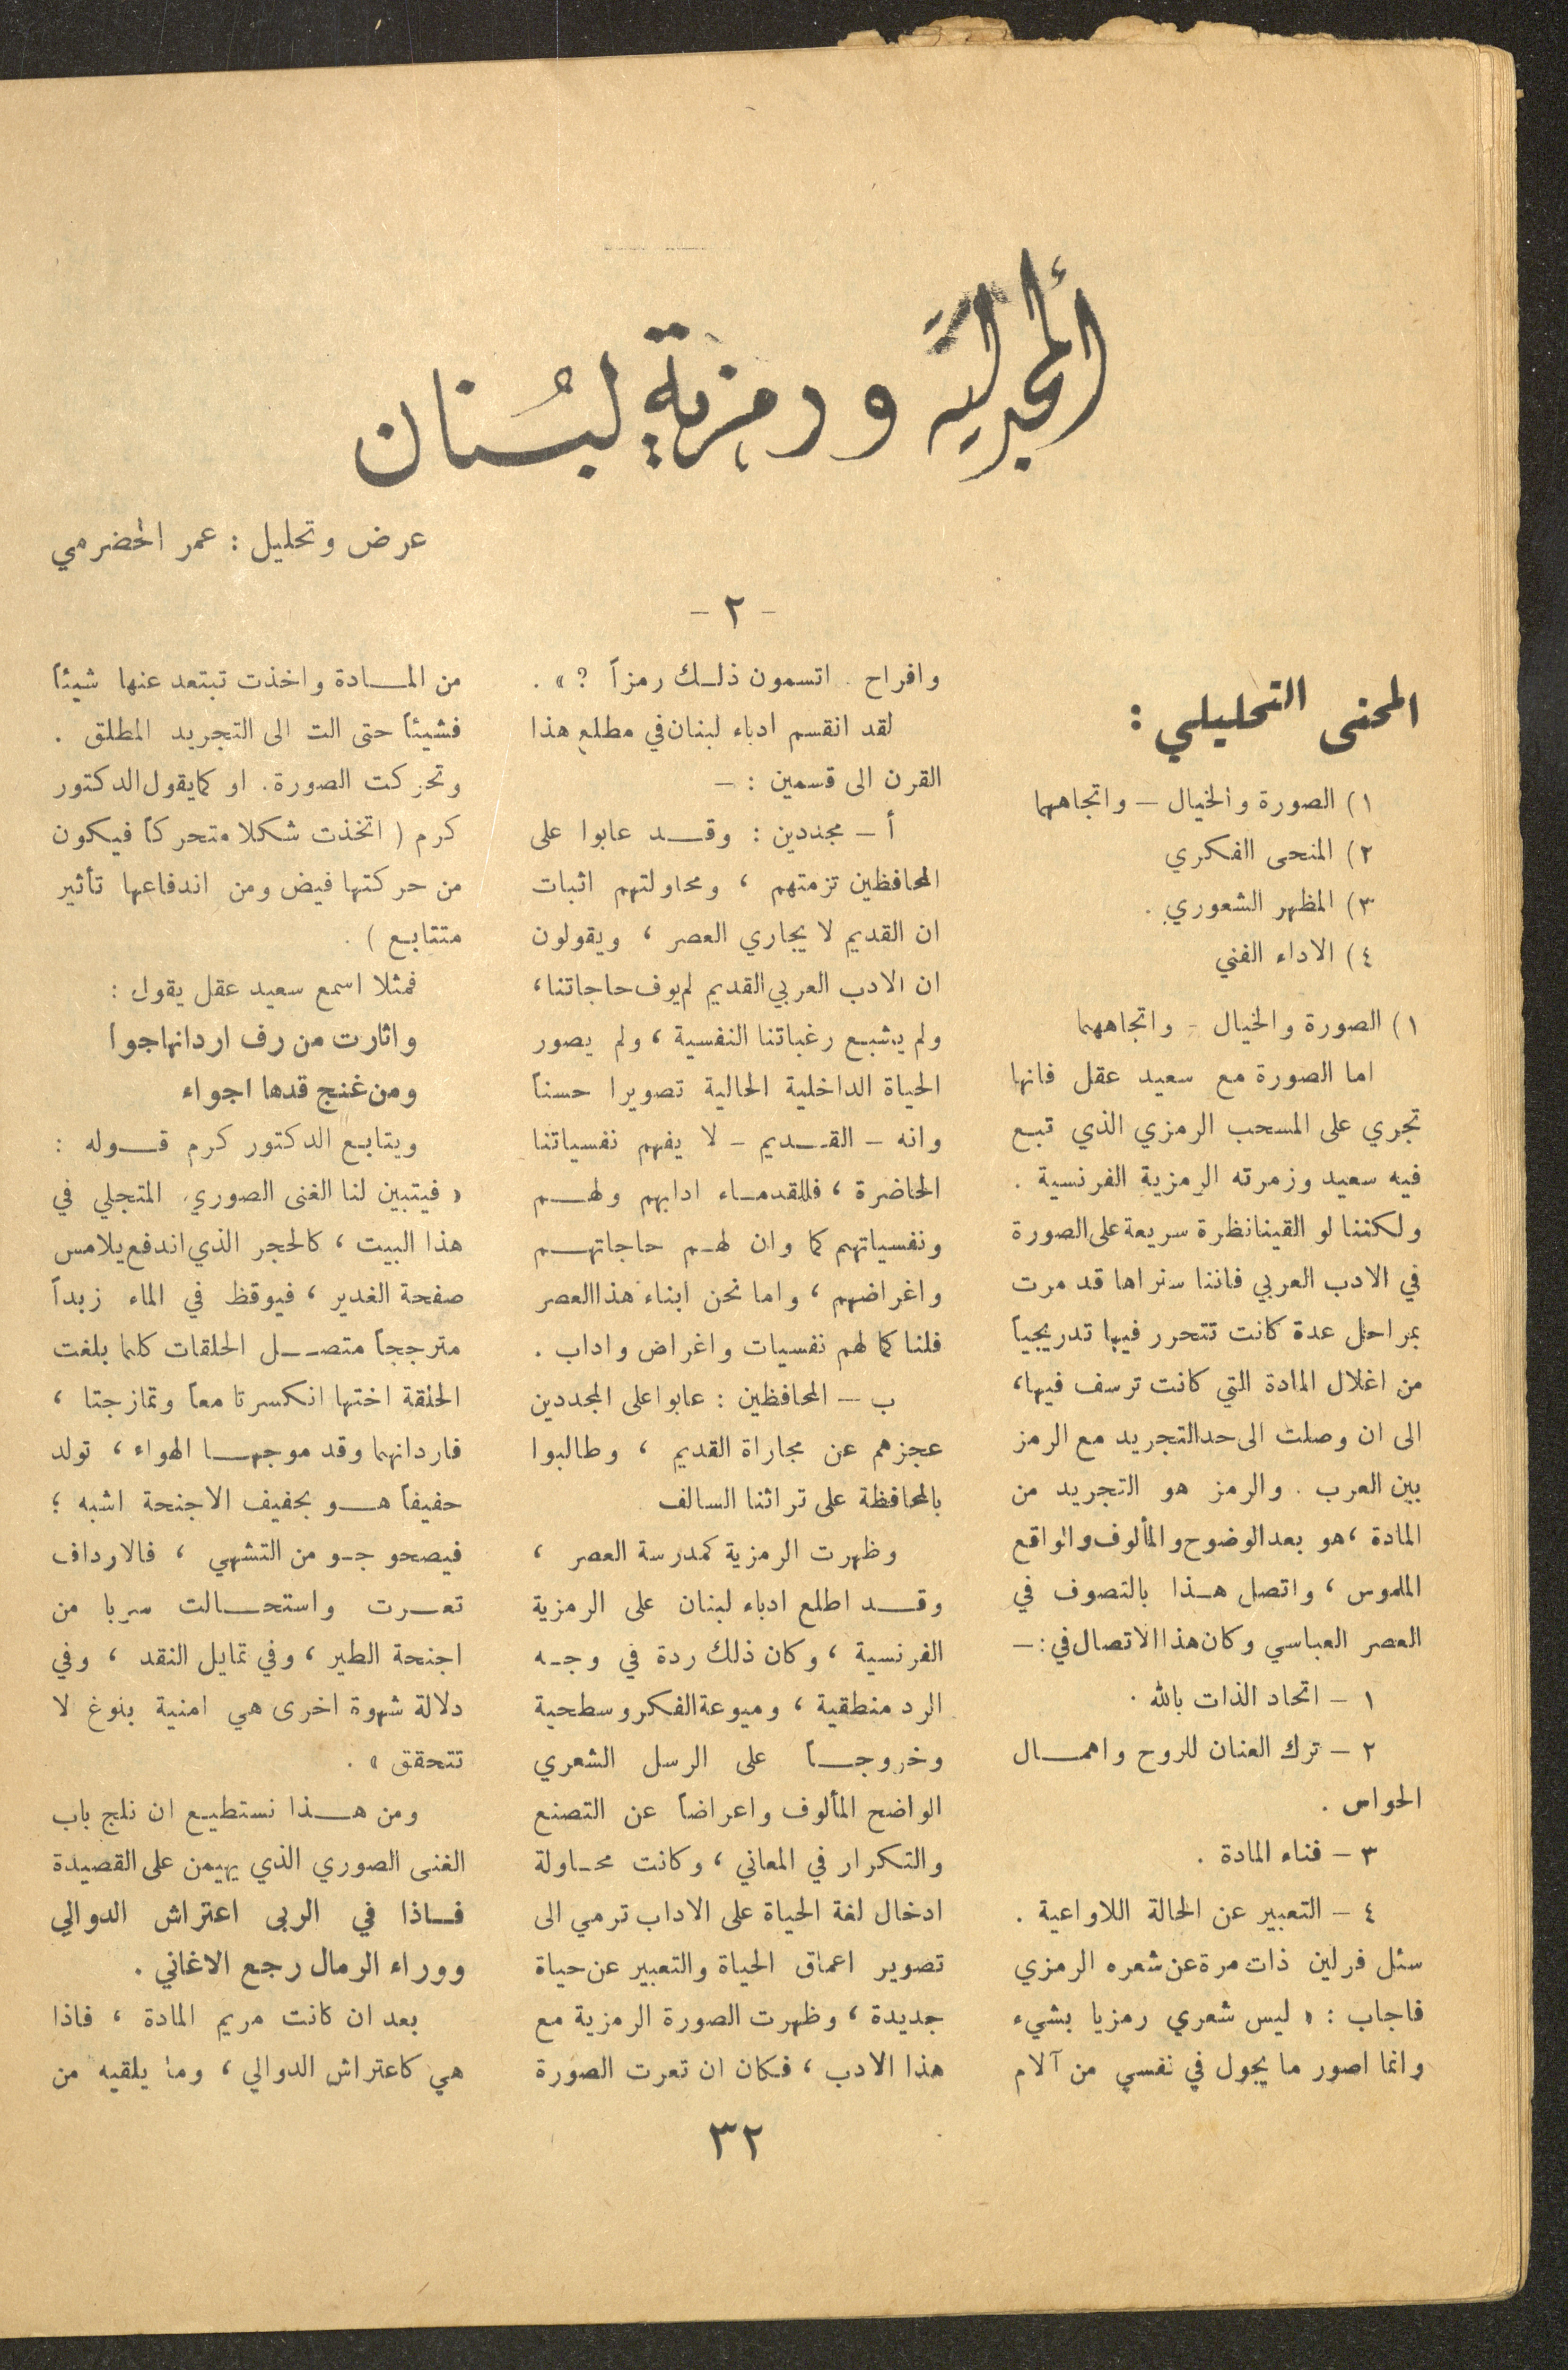 ألمجدليّة ورمزية لبُنان
عرض وتحليل : عمر الحضرمي
- ٢ -
المنحى التحليلي :
١) الصورة والخيال – واتجاهها
٢) المنحى الفكري
٣) المظهر الشعوري .
٤) الاداء الفني
١) الصورة والخيال - واتجاهها
اما الصورة مع سعيد عقل فانها
تجري على المسحب الرمزي الذي تبع
فيه سعيد وزمرته الرمزية الفرنسية .
ولكننا لو القينا نظرة سريعة على الصورة
في الادب العربي فاننا سنراها قد مرت
بمراحل عدة كانت تتحرر فيها تدريجياً
من اغلال المادة التي كانت ترسف فيها ،
الى ان وصلت الى حد التجريد مع الرمز
بين العرب . والرمز هو التجريد من
المادة ، هو بعد الوضوح والمألوف والواقع
الملموس ، واتصل هذا بالتصوف في
العصر العباسي وكان هذا الاتصال في : –
١ – اتحاد الذات بالله .
٢ – ترك العنان للروح واهمال
الحواس .
٣ – فناء المادة .
٤ – التعبير عن الحالة اللاواعية .
سئل فرلين ذات مرة عن شعره الرمزي
فاجاب : « ليس شعري رمزيا بشيء
وانما اصور ما يجول في نفسي من آلام
وافراح . اتسمون ذلك رمزاً ? » .
لقد انقسم ادباء لبنان في مطلع هذا
القرن الى قسمين : –
أ – مجددين : وقد عابوا على
المحافظين تزمتهم ، ومحاولتهم اثبات
ان القديم لا يجاري العصر ، ويقولون
ان الادب العربي القديم لم يوف حاجاتنا ،
ولم يشبع رغباتنا النفسية ، ولم يصور
الحياة الداخلية الحالية تصويرا حسناً
وانه – القديم – لا يفهم نفسياتنا
الحاضرة ، فللقدماء ادابهم ولهم
ونفسياتهم كما وان لهم حاجاتهم
واغراضهم ، واما نحن ابناء هذا العصر
فلنا كما لهم نفسيات واغراض واداب .
ب – المحافظين : عابوا على المجددين
عجزهم عن مجاراة القديم ، وطالبوا
بالمحافظة على تراثنا السالف
وظهرت الرمزية كمدرسة العصر ،
وقد اطلع ادباء لبنان على الرمزية
الفرنسية ، وكان ذلك ردة في وجه
الرد منطقية ، وميوعة الفكر وسطحية
وخروجاً على الرسل الشعري
الواضح المألوف واعراضاً عن التصنع
والتكرار في المعاني ، وكانت محاولة
ادخال لغة الحياة على الاداب ترمي الى
تصوير اعماق الحياة والتعبير عن حياة
جديدة ، وظهرت الصورة الرمزية مع
هذا الادب ، فكان ان تعرت الصورة
من المادة واخذت تبتعد عنها شيئاً
فشيئاً حتى الت الى التجريد المطلق .
وتحركت الصورة . او كما يقول الدكتور
كرم ( اتخذت شكلا متحركاً فيكون
من حركتها فيض ومن اندفاعها تأثير
متتابع ) .
فمثلا اسمع سعيد عقل يقول :
واثارت من رف اردانها جوا
ومن غنج قدها اجواء
ويتابع الدكتور كرم قوله :
« فيتبين لنا الغنى الصوري المتجلي في
هذا البيت ، كالحجر الذي اندفع يلامس
صفحة الغدير ، فيوقظ في الماء زبداً
مترججاً متصل الحلقات كلما بلغت
الحلقة اختها انكسرتا معاً وتمازجتا ،
فاردانهما وقد موجها الهواء ، تولد
حفيفاً هو بحفيف الاجنحة اشبه ؛
فيصحو جو من التشهي ، فالارداف
تعرت واستحالت سربا من
اجنحة الطير ، وفي تمايل النقد ، وفي
دلالة شهوة اخرى هي امنية بلوغ لا
تتحقق » .
ومن هذا نستطيع ان نلج باب
الغنى الصوري الذي يهيمن على القصيدة
فاذا في الربى اعتراش الدوالي
ووراء الرمال رجع الاغاني .
بعد ان كانت مريم المادة ، فاذا
هي كاعتراش الدوالي ، وما يلقيه من
٣٢